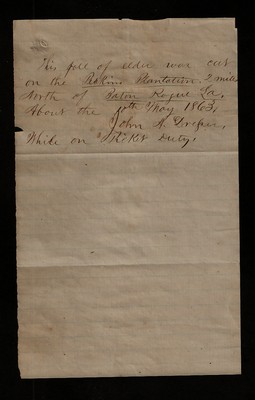 This pole of elder was cut
on the Perkins Plantation. 2 miles
North of Baton Rogue La.
About the 10th May 1863,
John A. Drefser,
While on Picket Duty.